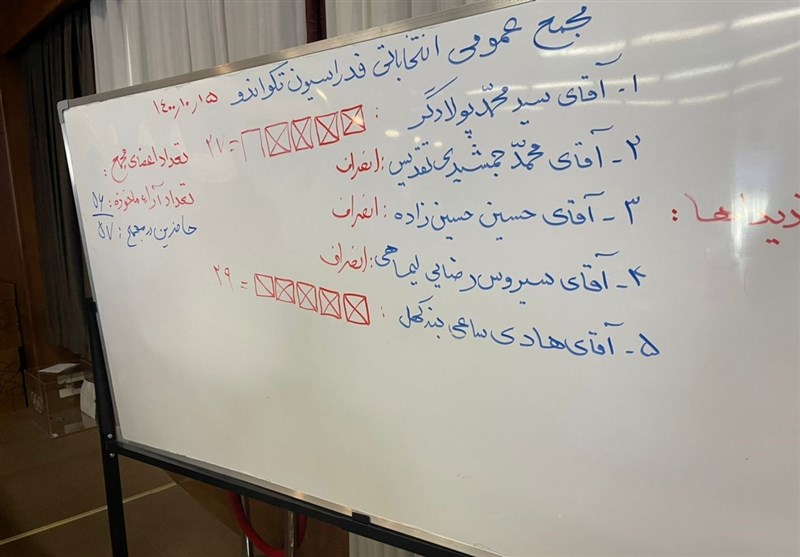 مجمع عمومی انتخاباتی فدراسیون تکواندو ۱۴۰۰،۱۰،۱۵
۱- آقای سید محمد پولادگر : = ۲۷
۲- آقای محمد جمشیدی تقدیس : انصراف
۳- آقای حسین حسین زاده : انصراف
۴- آقای سیروس رضایی لیماهی : انصراف
۵- آقای هادی ساعی بنه کهل : = ۲۹
تعداد اعضای مجمع :
تعداد آراء ماخوذه : ۵۶
حاضرین در مجمع : ۵۷